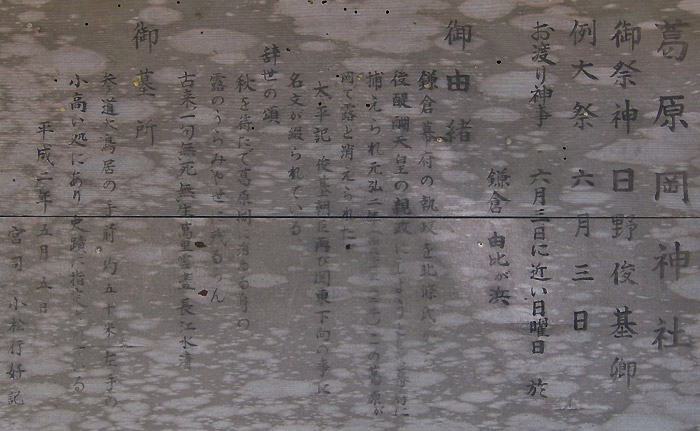 葛原岡神社
御祭神 日野俊基卿
例大祭 六月三日
お渡り神事 六月三日に近い日曜日 於
鎌倉 由比が浜
御由緒
鎌倉幕府の執政を北條氏から
後醍醐天皇の親政にしようと
捕えられ元弘二年 この葛原が
岡で露と消えられた
太平記 俊基朝臣再び関東下向の事に
名文が綴られている
辞世の頌
秋を待たで葛原岡に消ゆる身の
露のうらみや世に残るらん
古来一句 無死無生 万里雲尽 長江水清
御墓所
参道大鳥居の手前 約五十米左手の
小高い処にあり史蹟に指定 る
平成二年五月五日
宮司 小松行好記